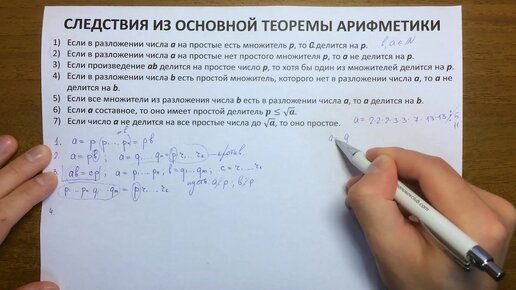 СЛЕДСТВИЯ ИЗ ОСНОВНОЙ ТЕОРЕМЫ АРИФМЕТИКИ
1) Если в разложении числа a на простые есть множитель p, то a делится на p.
2) Если в разложении числа a на простые нет простого множителя p, то a не делится на p.
3) Если произведение ab делится на простое число p, то хотя бы один из множителей делится на p.
4) Если в разложении числа b есть простой множитель, которого нет в разложении числа a, то a не
делится на b.
5) Если все множители из разложения числа b есть в разложении числа a, то a делится на b.
6) Если a составное, то оно имеет простой делитель p ≤ √a.
7) Если число a не делится на все простые числа до √a, то оно простое.
a = 2·2·2·3·3·7·13·13
1. a = p
2. a = pb; a = q₁...qₙ =
3. ab = cp,
4.